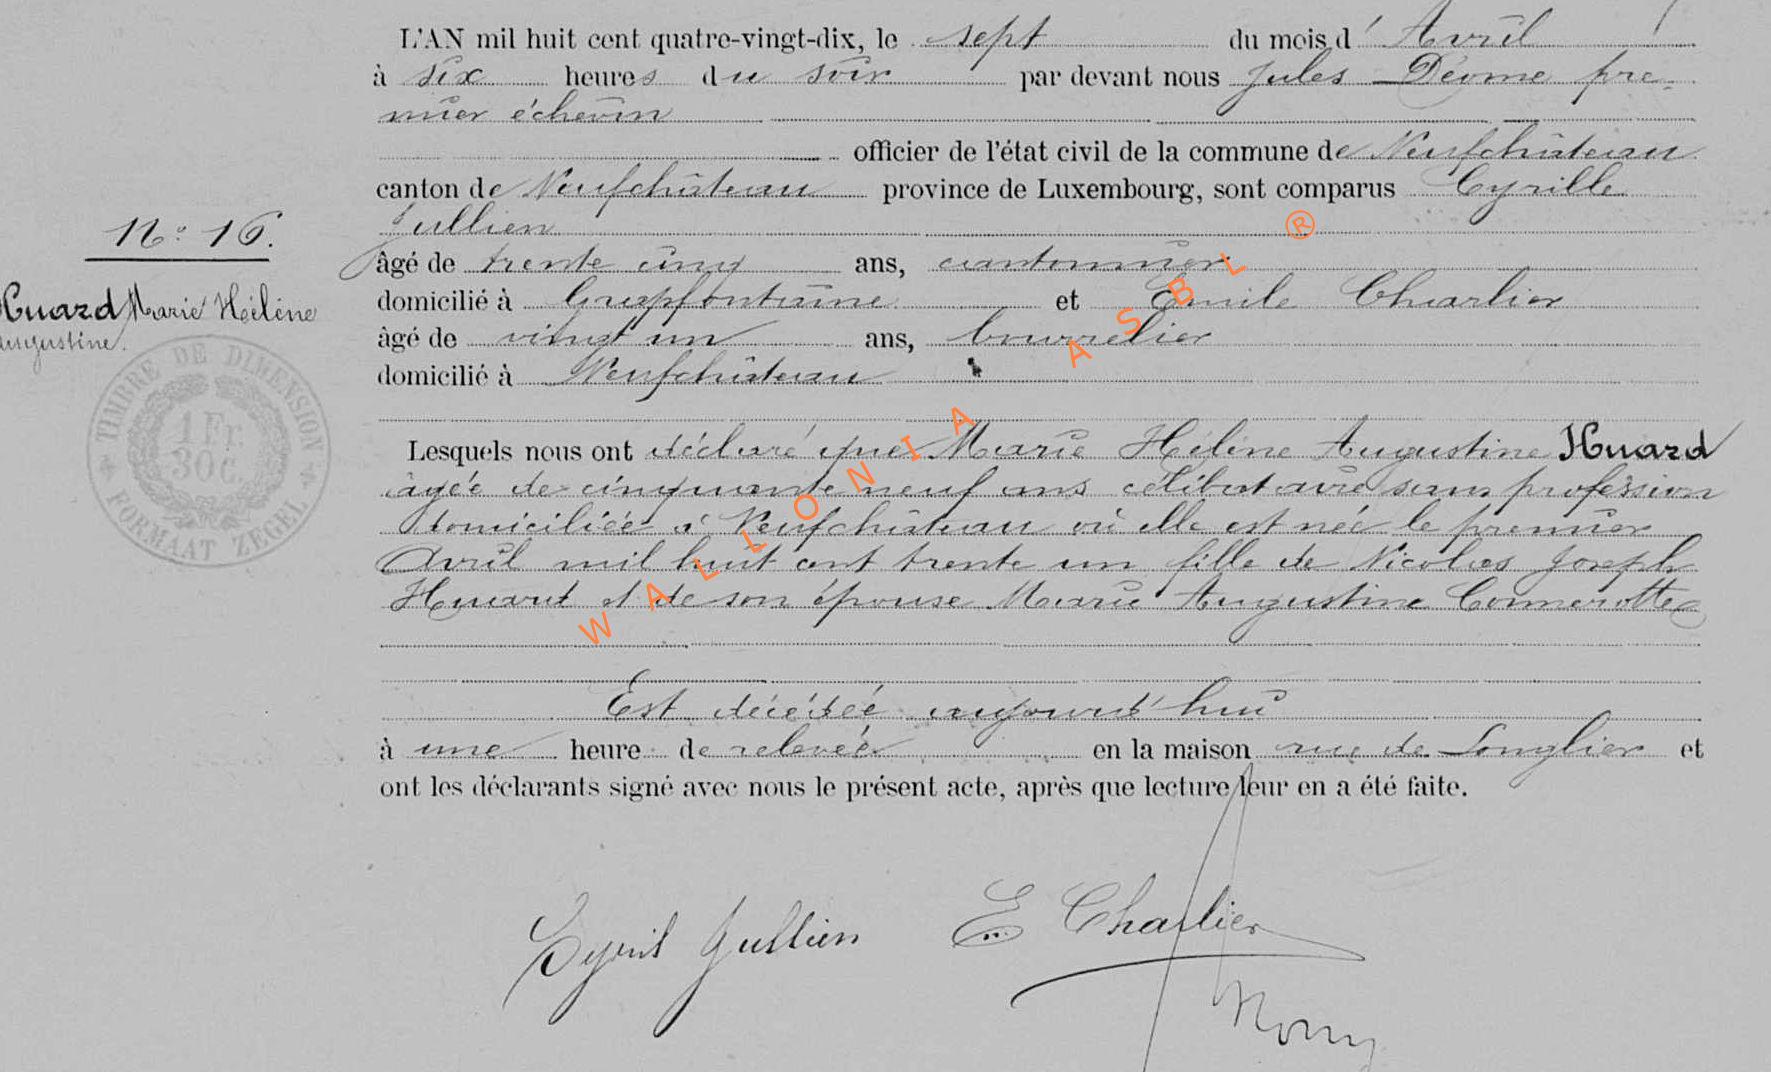 L'AN mil huit cent quatre-vingt-dix, le sept du mois d' Avril
à six heures du soir par devant nous Jules Déome pre-
mier échevin
officier de l'état civil de la commune de Neufchâteau
canton de Neufchâteau province de Luxembourg, sont comparus Cyrille
Jullien
No 16.
âgé de trente cinq ans, cantonnier
domicilié à Grapfontaine et Emile Charlier
Huard Marie Hélène
Augustine.
âgé de vingt un ans, bourrelier
domicilié à Neufchâteau
TIMBRE DE DIMENSION
1 Fr.
30 C.
FORMAAT ZEGEL
Lesquels nous ont déclaré que Marie Hélène Augustine Huard
âgée de cinquante neuf ans célibataire sans profession
domiciliée à Neufchâteau où elle est née le premier
Avril mil huit cent trente un fille de Nicolas Joseph
Huard et de son épouse Marie Augustine Connerotte
WALLONIA ASBL ®
Est décédée aujourd'hui
à une heure de relevée en la maison rue de Longlier et
ont les déclarants signé avec nous le présent acte, après que lecture leur en a été faite.
Cyril Jullien E Charlier